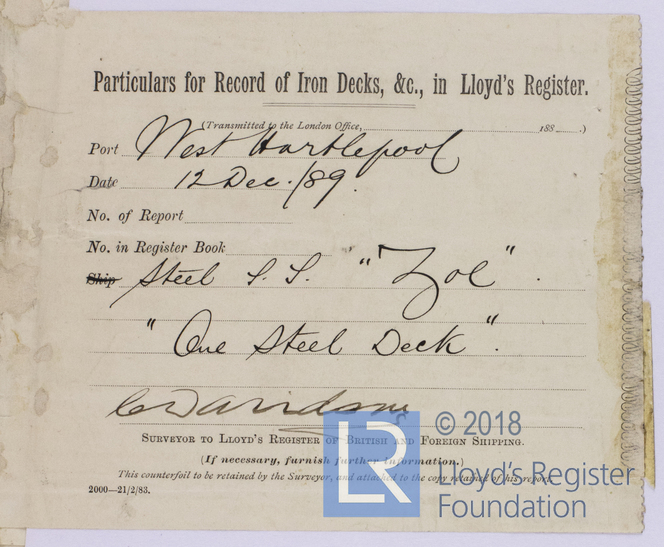 Particulars for Record of Iron Decks, &c., in Lloyd's Register.
(Transmitted to the London Office, 188 .)
Port West Hartlepool
Date 12 Dec. /89.
No. of Report
No. in Register Book
Ship Steel S.S. "Zoe".
"One Steel Deck".
C Davidson
SURVEYOR TO LLOYD'S REGISTER OF BRITISH AND FOREIGN SHIPPING.
(If necessary, furnish further information.)
This counterfoil to be retained by the Surveyor, and attached to the copy retained of his report.
2000—21/2/83.
LR © 2018
Lloyd's Register
Foundation